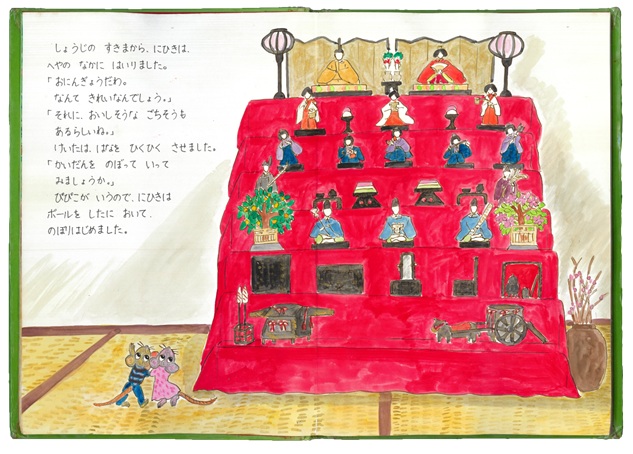 しょうじの すきまから、にひきは、
へやの なかに はいりました。
「おにんぎょうだわ。
なんて きれいなんでしょう。」
「それに、おいしそうな ごちそうも
あるらしいね。」
けいたは、はなを ひくひく させました。
「かいだんを のぼって いって
みましょうか。」
ぴぴこが いうので、にひきは
ボールを したに おいて、
のぼりはじめました。